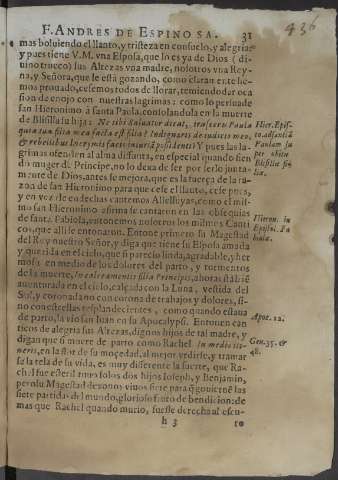 F. ANDRES DE ESPINOSA. 31
436
mas boluiendo el llanto, y tristeza en consuelo, y alegria:
y pues tiene V.M. vna Esposa, que lo es ya de Dios (di-
uino trueco) sus Altezas vna madre, nosotros vna Rey-
na, y Señora, que le està gozando, como claramente he-
mos prouado, cessemos todos de llorar, temiendo dar oca
sion de enojo con nuestras lagrimas: como lo persuade
san Hieronimo à santa Paula, consolandola en la muerte
de Blesilla su hija: Ne tibi Saluator dicat, Irasceris Paula
quia tua filia mea facta est filia? Indignaris de iudicio meo,
& rebellibus lacrymis facis iniuriã possidenti? Y pues las la-
grimas ofenden al alma difunta, en especial quando sien
do muger de Principe, no lo dexa de ser por serlo junta-
mente de Dios, antes se mejora, que es la fuerça de la ra-
zon de san Hieronimo para que cese el llanto, cese pues,
y en vez de endechas cantemos Alelluyas, como el mis-
mo san Hieronimo afirma se cantaren en las obsequias
de santa Fabiola, entonemos nosotros los mismos Canti
cos, que alli se entonaron. Entone primero su Magestad
del Rey nuestro Señor, y diga que tiene su Esposa amada
y querida en el cielo, que si parecio linda, agradable, y her
mosa en medio de los dolores del parto, y tormentos
de la muerte, In calceamentis filia Principis, ahora està biẽ
auenturada en el cielo, calçada con la Luna, vestida del
Sol, y coronada no con corona de trabajos y dolores, si-
no con estrellas resplandecientes, como quando estaua
de parto, la vio san Iuan en su Apocalypsi. Entonen can
ticos de alegria sus Altezas, dignos hijos de tal madre, y
digan que si muere de parto como Rachel In medio iti-
neris, en la flor de su mocedad, al mejor vrdirse, y tramar
se la tela de su vida, es muy diferente la suerte, que Ra-
chel fue esteril tuuo solos dos hijos Ioseph, y Benjamin,
pero su Magestad dexonos viuos siete para q̃ gouiernẽ las
siete partidas del mundo, glorioso fruto de bendicion: de
mas que Rachel quando murio, fuesse derecha al escu-
h 3 ro
Hier. Epis-
to. ad sanctã
Paulam su
per obitu
Blesille fi-
liæ.
Hieron. in
Epistol. Fa
biolæ.
Apoc. 12.
Gen. 35. &
48.